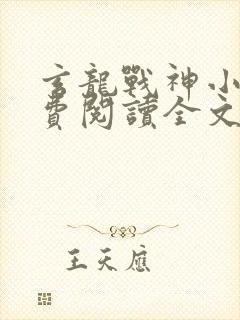 玄龍戰神小
費閱讀全文
王天應